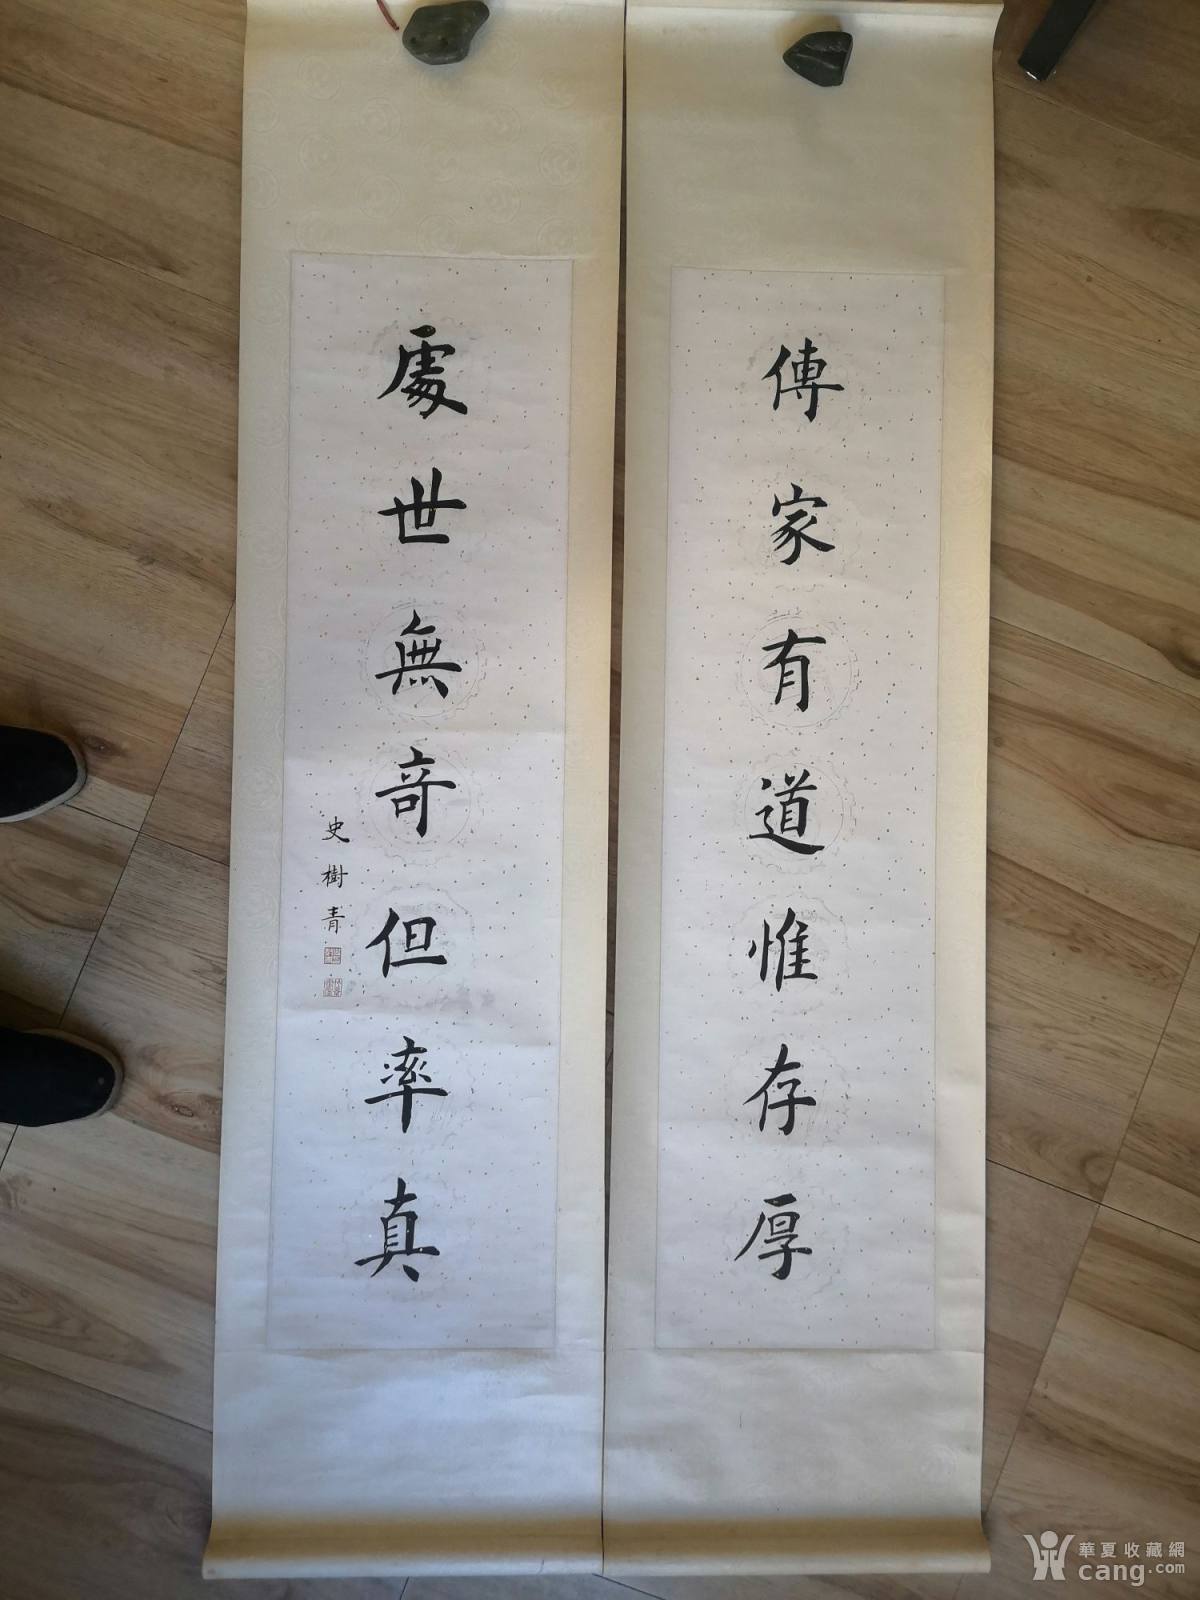 傳家有道惟存厚
處世無奇但率真
史樹青
華夏收藏網
cang.com